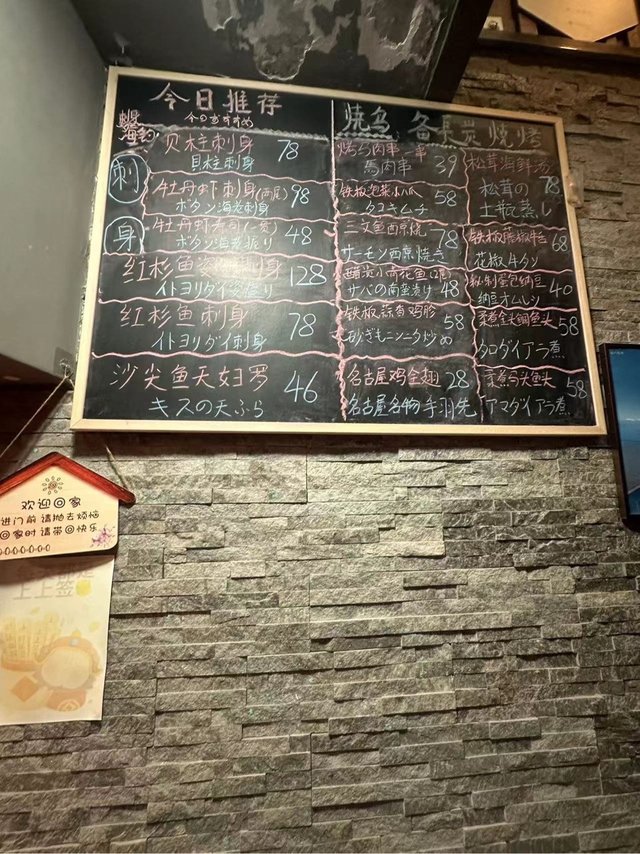 今日推荐
今のおすすめ
刺
身
贝柱刺身 78
貝柱刺身
牡丹虾刺身(两尾) 98
ボタン海老刺身
牡丹虾寿司(一贯) 48
ボタン海老握り
红杉鱼姿造刺身 128
イトヨリダイ姿造り
红杉鱼刺身 78
イトヨリダイ刺身
沙尖鱼天妇罗 46
キスの天ふら
烧鸟 备长炭 烧烤
烤马肉串一串 39
馬肉串
铁板泡菜小八爪 58
タコキムチ
三文鱼西京烧 78
サーモン西京焼き
サバの南蛮漬け 48
铁板蒜香鸡胗 58
砂ぎもニンニク炒め
名古屋鸡全翅 28
名古屋名物手羽先
松茸海鲜汤 78
松茸の
土瓶蒸し
铁板藤椒牛舌 68
花椒牛タン
秘制蛋包纳豆 40
納豆オムレツ
58
タロダイアラ煮
58
アマダイアラ煮
欢迎回家
进门前请抛去烦恼
回家时请带回快乐
上上签